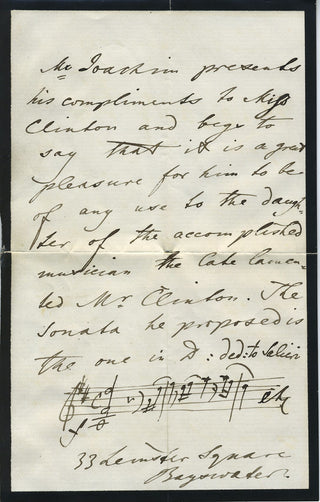 Mr Joachim presents
his compliments to Miss
Clinton and begs to
say that it is a great
pleasure for him to be
of any use to the daugh-
ter of the accomplished
musician the late lamen-
ted Mr Clinton. The
Sonata he proposed is
the one in D: ded: to Salieri
etc
33 Leinster Square
Bayswater.